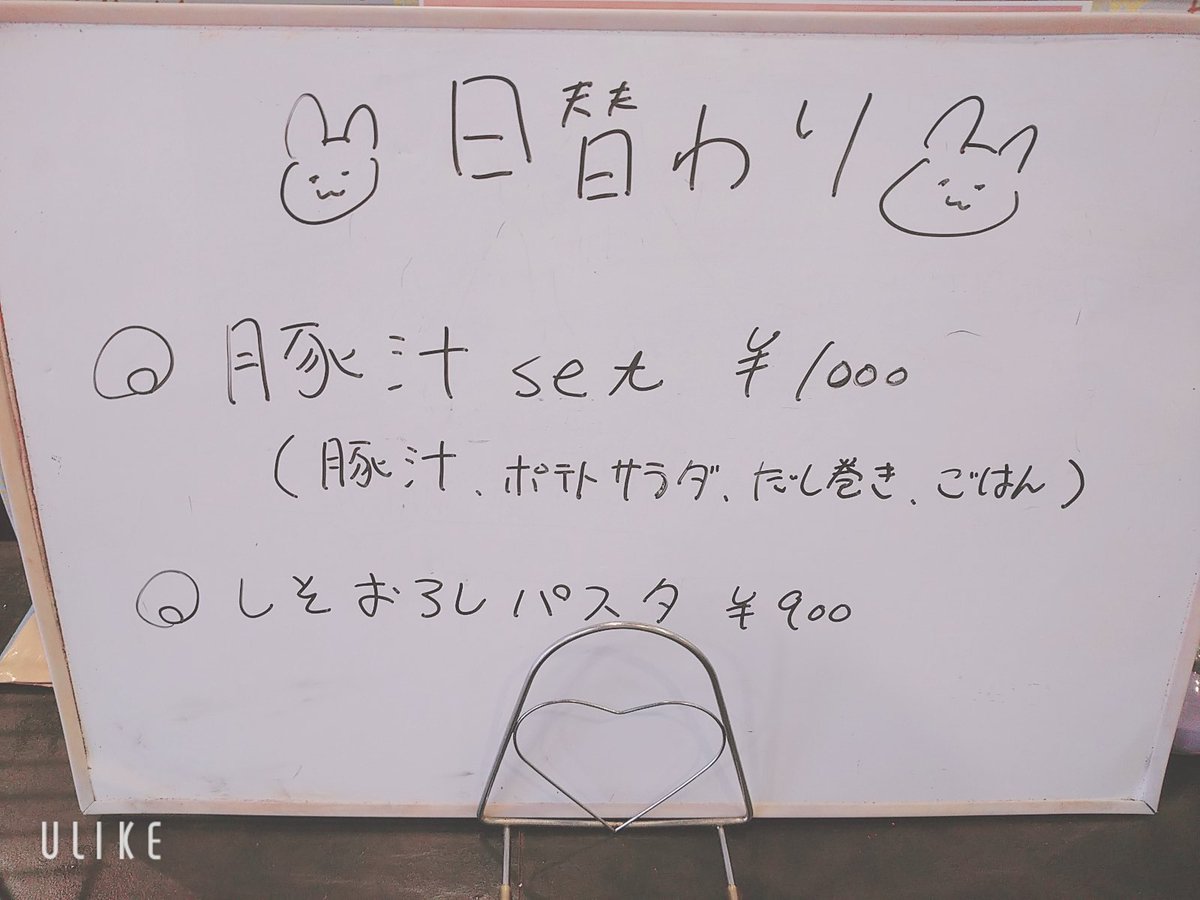 日替わり
豚汁 set ¥1000
(豚汁、ポテトサラダ、だし巻き、ごはん)
しそおろしパスタ ¥900
ULIKE